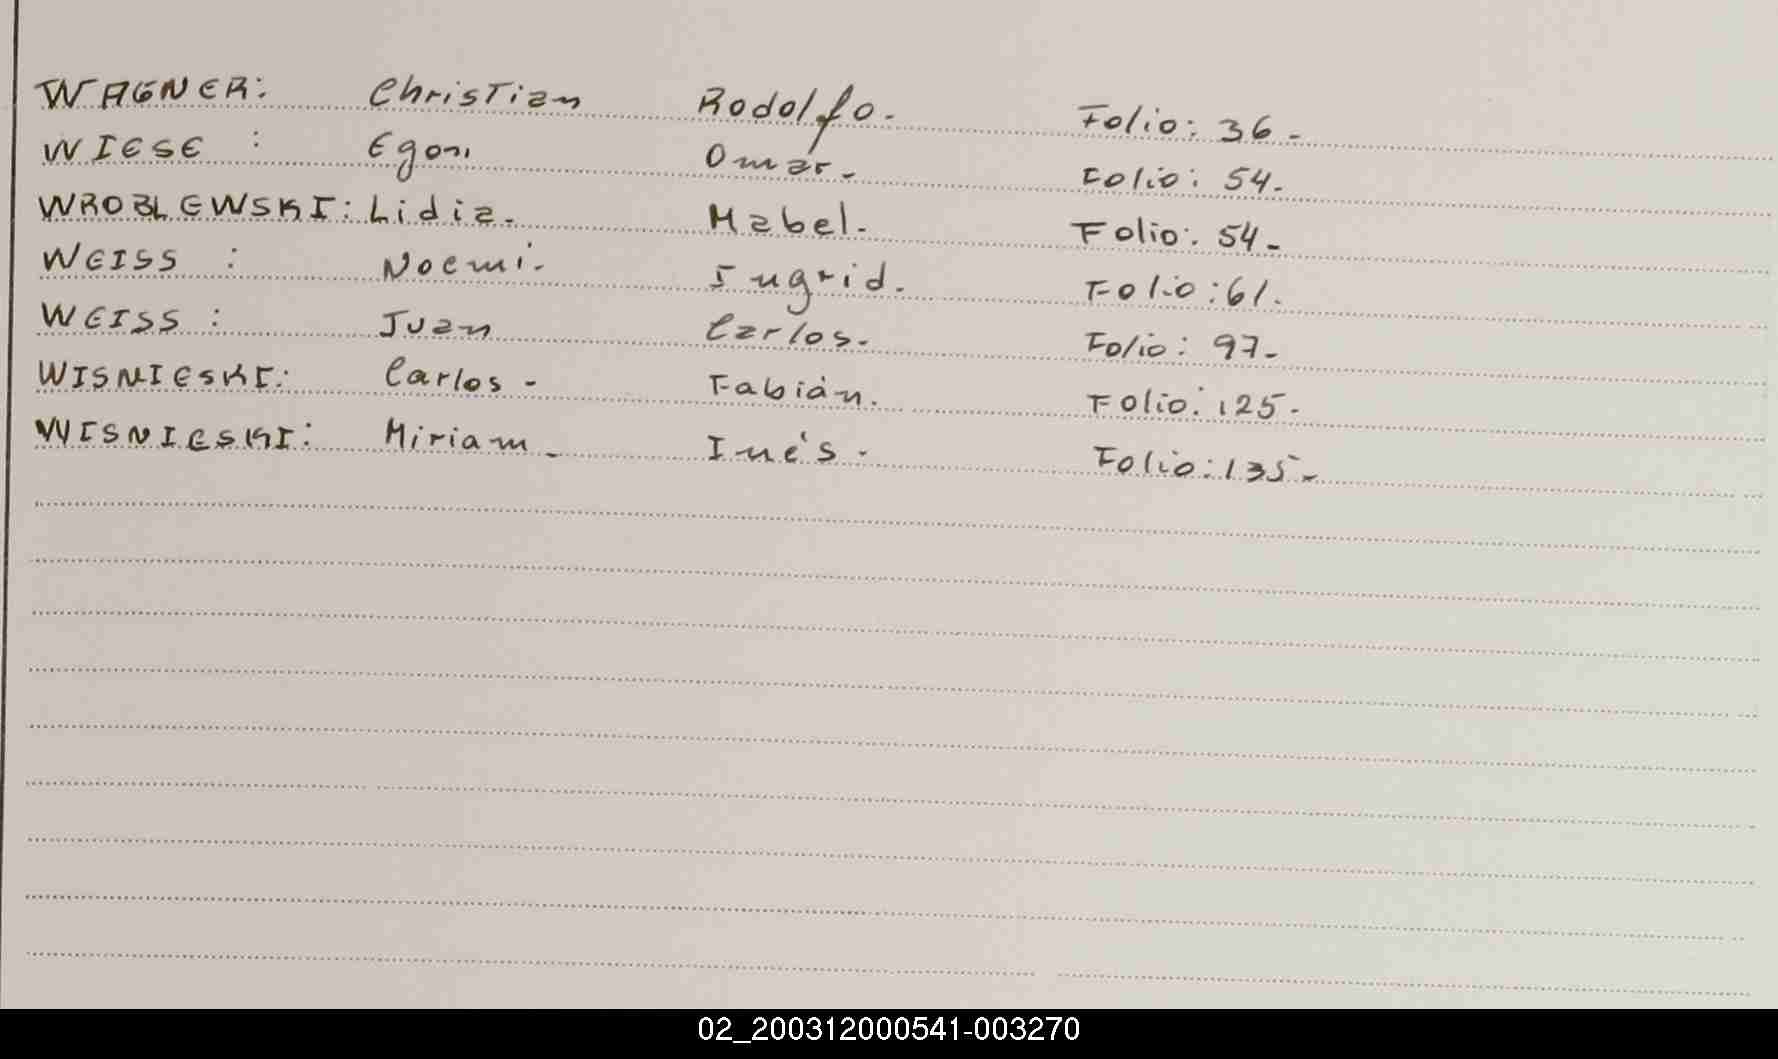 WAGNER: Christian Rodolfo. Folio: 36-
WIESE : Egon Omar. Folio: 54-
WROBLEWSKI: Lidia. Mabel. Folio: 54-
WEISS : Noemi. Ingrid. Folio: 61.
WEISS : Juan Carlos. Folio: 97-
WISNIESKI: Carlos - Fabián. Folio: 125-
WISNIESKI: Miriam - Inés. Folio: 135-
02_200312000541-003270